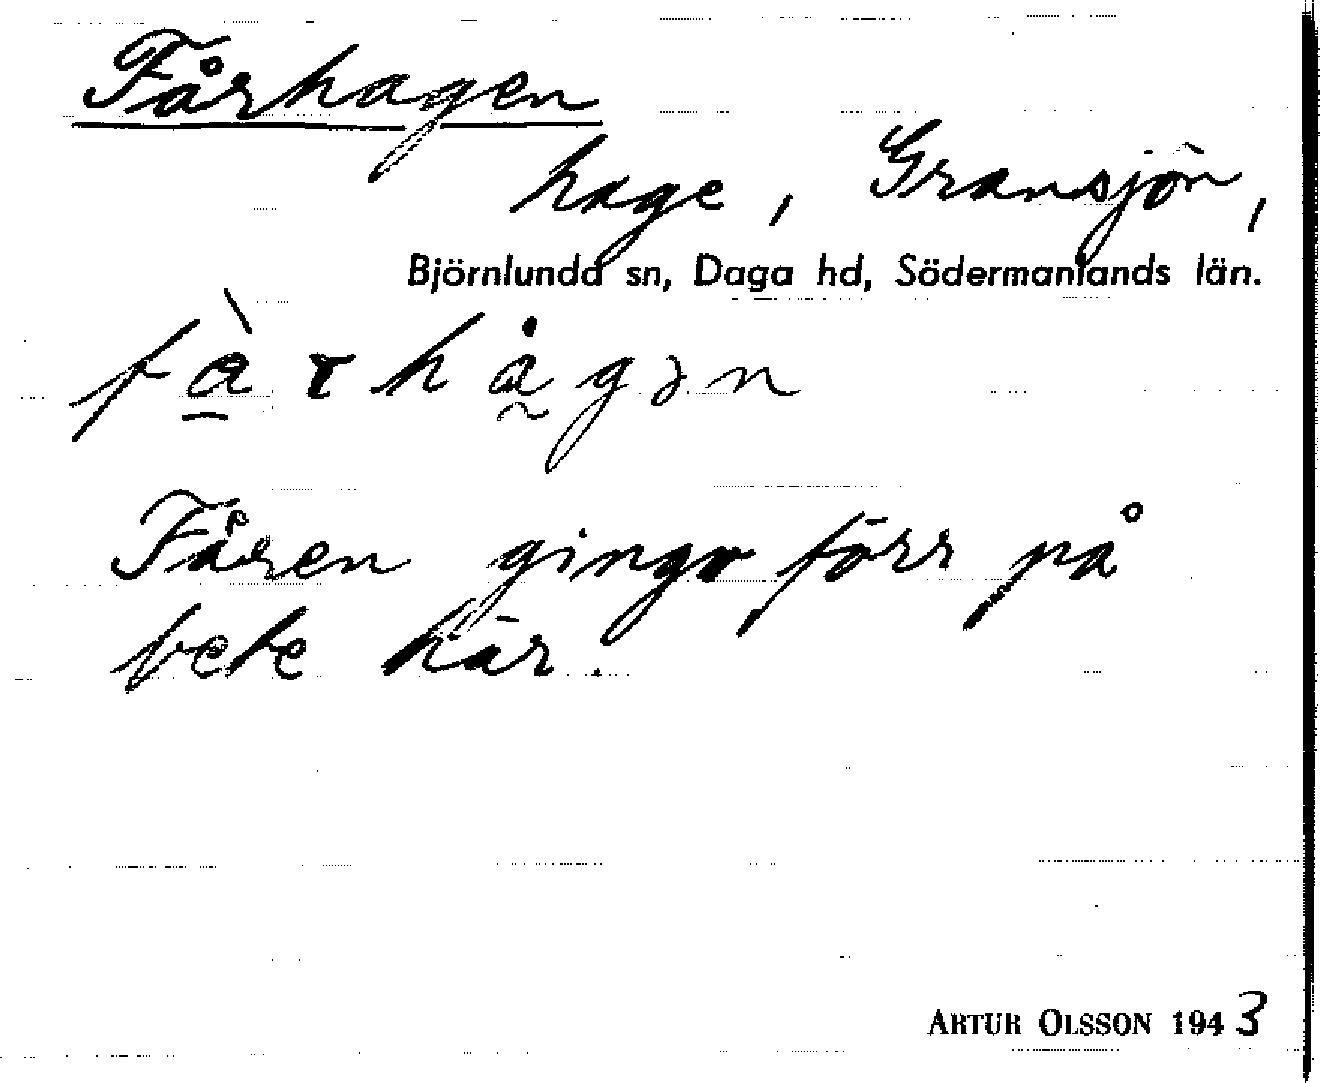 Fårhagen
hage, Gransjön,
Björnlunda sn, Daga hd, Södermanlands län.
Fåren gingo förr på
bete här.
ARTUR OLSSON 1943